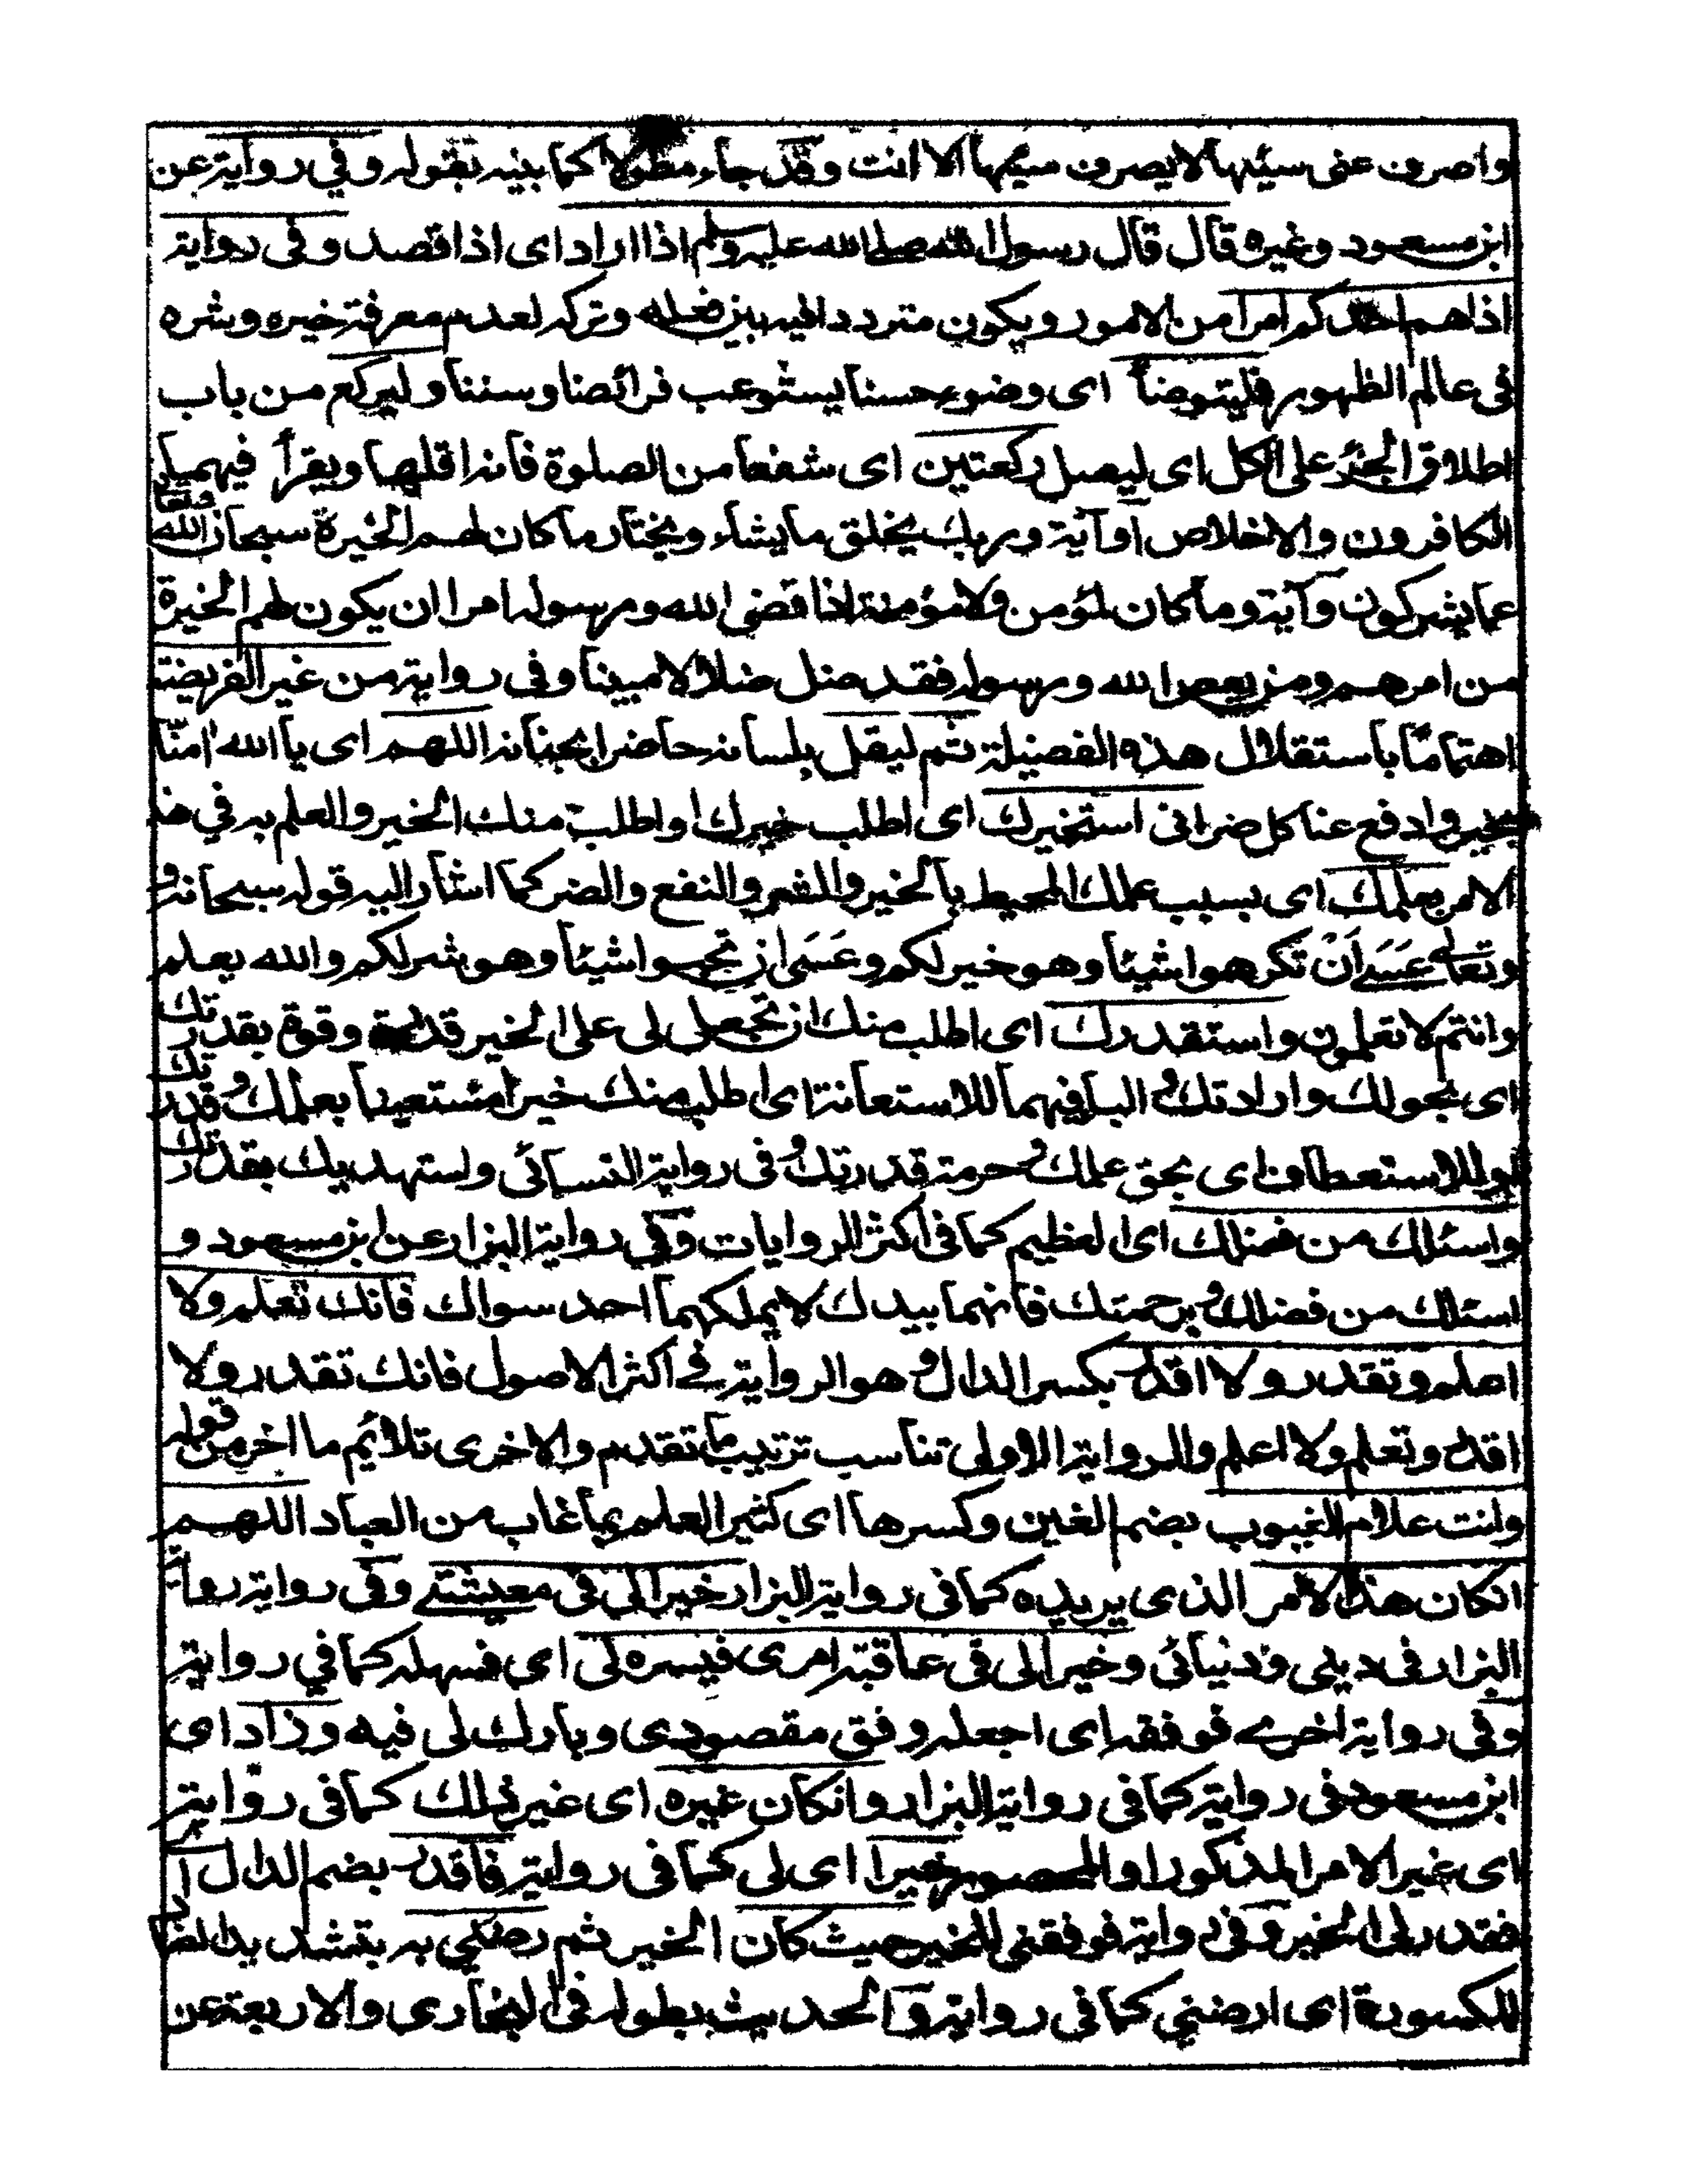 واصرف عنى سيئها لا يصرف سيئها الا انت وقد جاء مطولا كما بينه بقوله وفي رواية عن
ابن مسعود وغيره قال قال رسول الله صلى الله عليه وسلم اذا اراد اى اذا قصد وفى رواية
اذا هم احدكم امرا من الامور ويكون مترددا فيه بين فعله وتركه لعدم معرفة خيره وشره
فى عالم الظهور فليتوضأ اى وضوء حسنا يستوعب فرائضا وسننا وليركع من باب
اطلاق الجزء على الكل اى ليصل ركعتين اى شفعا من الصلوة فانه اقلها ويقرأ فيهما
الكافرون والاخلاص او آية وربك يخلق ما يشاء ويختار ما كان لهم الخيرة سبحان الله
عما يشركون وآية وما كان لمؤمن ولا مؤمنة اذا قضى الله ورسوله امرا ان يكون لهم الخيرة
من امرهم ومن يعص الله ورسوله فقد ضل ضلالا مبينا وفى رواية من غير الفريضة
اهتماما باستقلال هذه الفضيلة ثم ليقل بلسانه حاضرا بجنانه اللهم اى يا الله امنا
بخير وادفع عنا كل ضر انى استخيرك اى اطلب خيرك او اطلب منك الخير والعلم به في
الامر بعلمك اى بسبب علمك المحيط بالخير والشر والنفع والضر كما اشار اليه قوله سبحانه
وتعالى عَسَى اَنْ تكرهوا شيئا وهو خير لكم وعَسَى ان تحبوا شيئا وهو شر لكم والله يعلم
وانتم لا تعلمون واستقدرك اى اطلب منك ان تجعل لى على الخير قدرة وقوة بقدرتك
اى بحولك وارادتك والبا فيهما للاستعانة اى اطلب منك خيرا مستعينا بعلمك وقدرتك
او للاستعطاف اى بحق علمك وحرمة قدرتك وفى رواية النسائى واستهديك بقدرتك
واسئلك من فضلك اى العظيم كما فى اكثر الروايات وفي رواية البزار عن ابن مسعود و
اسئلك من فضلك وبرحمتك فانهما بيدك لا يملكهما احد سواك فانك تعلم ولا
اعلم وتقدر ولا اقدر بكسر الدال وهو الرواية في اكثر الاصول فانك تقدر ولا
اقدر وتعلم ولا اعلم والرواية الاولى تناسب ترتيب ما تقدم والاخرى تلائم ما اخر من قوله
وانت علام الغيوب بضم الغين وكسرها اى كثير العلم بما غاب من العباد اللهم
انكان هذا الامر الذى يريده كما فى رواية البزار خيرا لى فى معيشتى وفى رواية رواها
البزار فى دينى ودنيائى وخيرا لى فى عاقبة امرى فيسره لى اى فسهله كما في رواية
وفى رواية اخرى فوفقه اى اجعله وفق مقصودى وبارك لى فيه وزاد اى
ابن مسعود فى رواية كما فى رواية البزار وانكان غيره اى غير ذلك كما فى رواية
اى غير الامر المذكور او المحصور خيرا اى لى كما فى رواية فاقدر بضم الدال
فقدر لى الخير وفى رواية فوفقنى للخير حيث كان الخير ثم رضنى به بتشديد الضاد
المكسورة اى ارضني كما فى رواية والحديث بطوله فى البخارى والاربعة عن